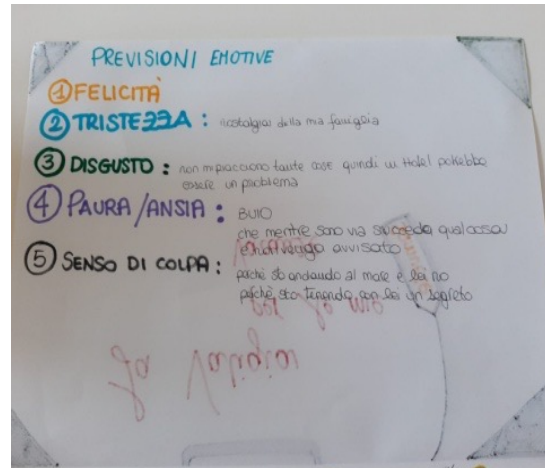 PREVISIONI EMOTIVE
① FELICITÀ
② TRISTEZZA : nostalgia della mia famiglia
③ DISGUSTO : non mi piacciono tante cose quindi in Hotel potrebbe
essere un problema
④ PAURA/ANSIA : BUIO
che mentre sono via succeda qualcosa
e non venga avvisato
⑤ SENSO DI COLPA : perché sto andando al mare e lei no
perché sto tenendo con lei un segreto